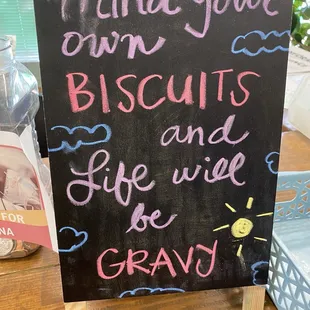 Mind your
own
BISCUITS
and
Life will
be
GRAVY
FOR
NA